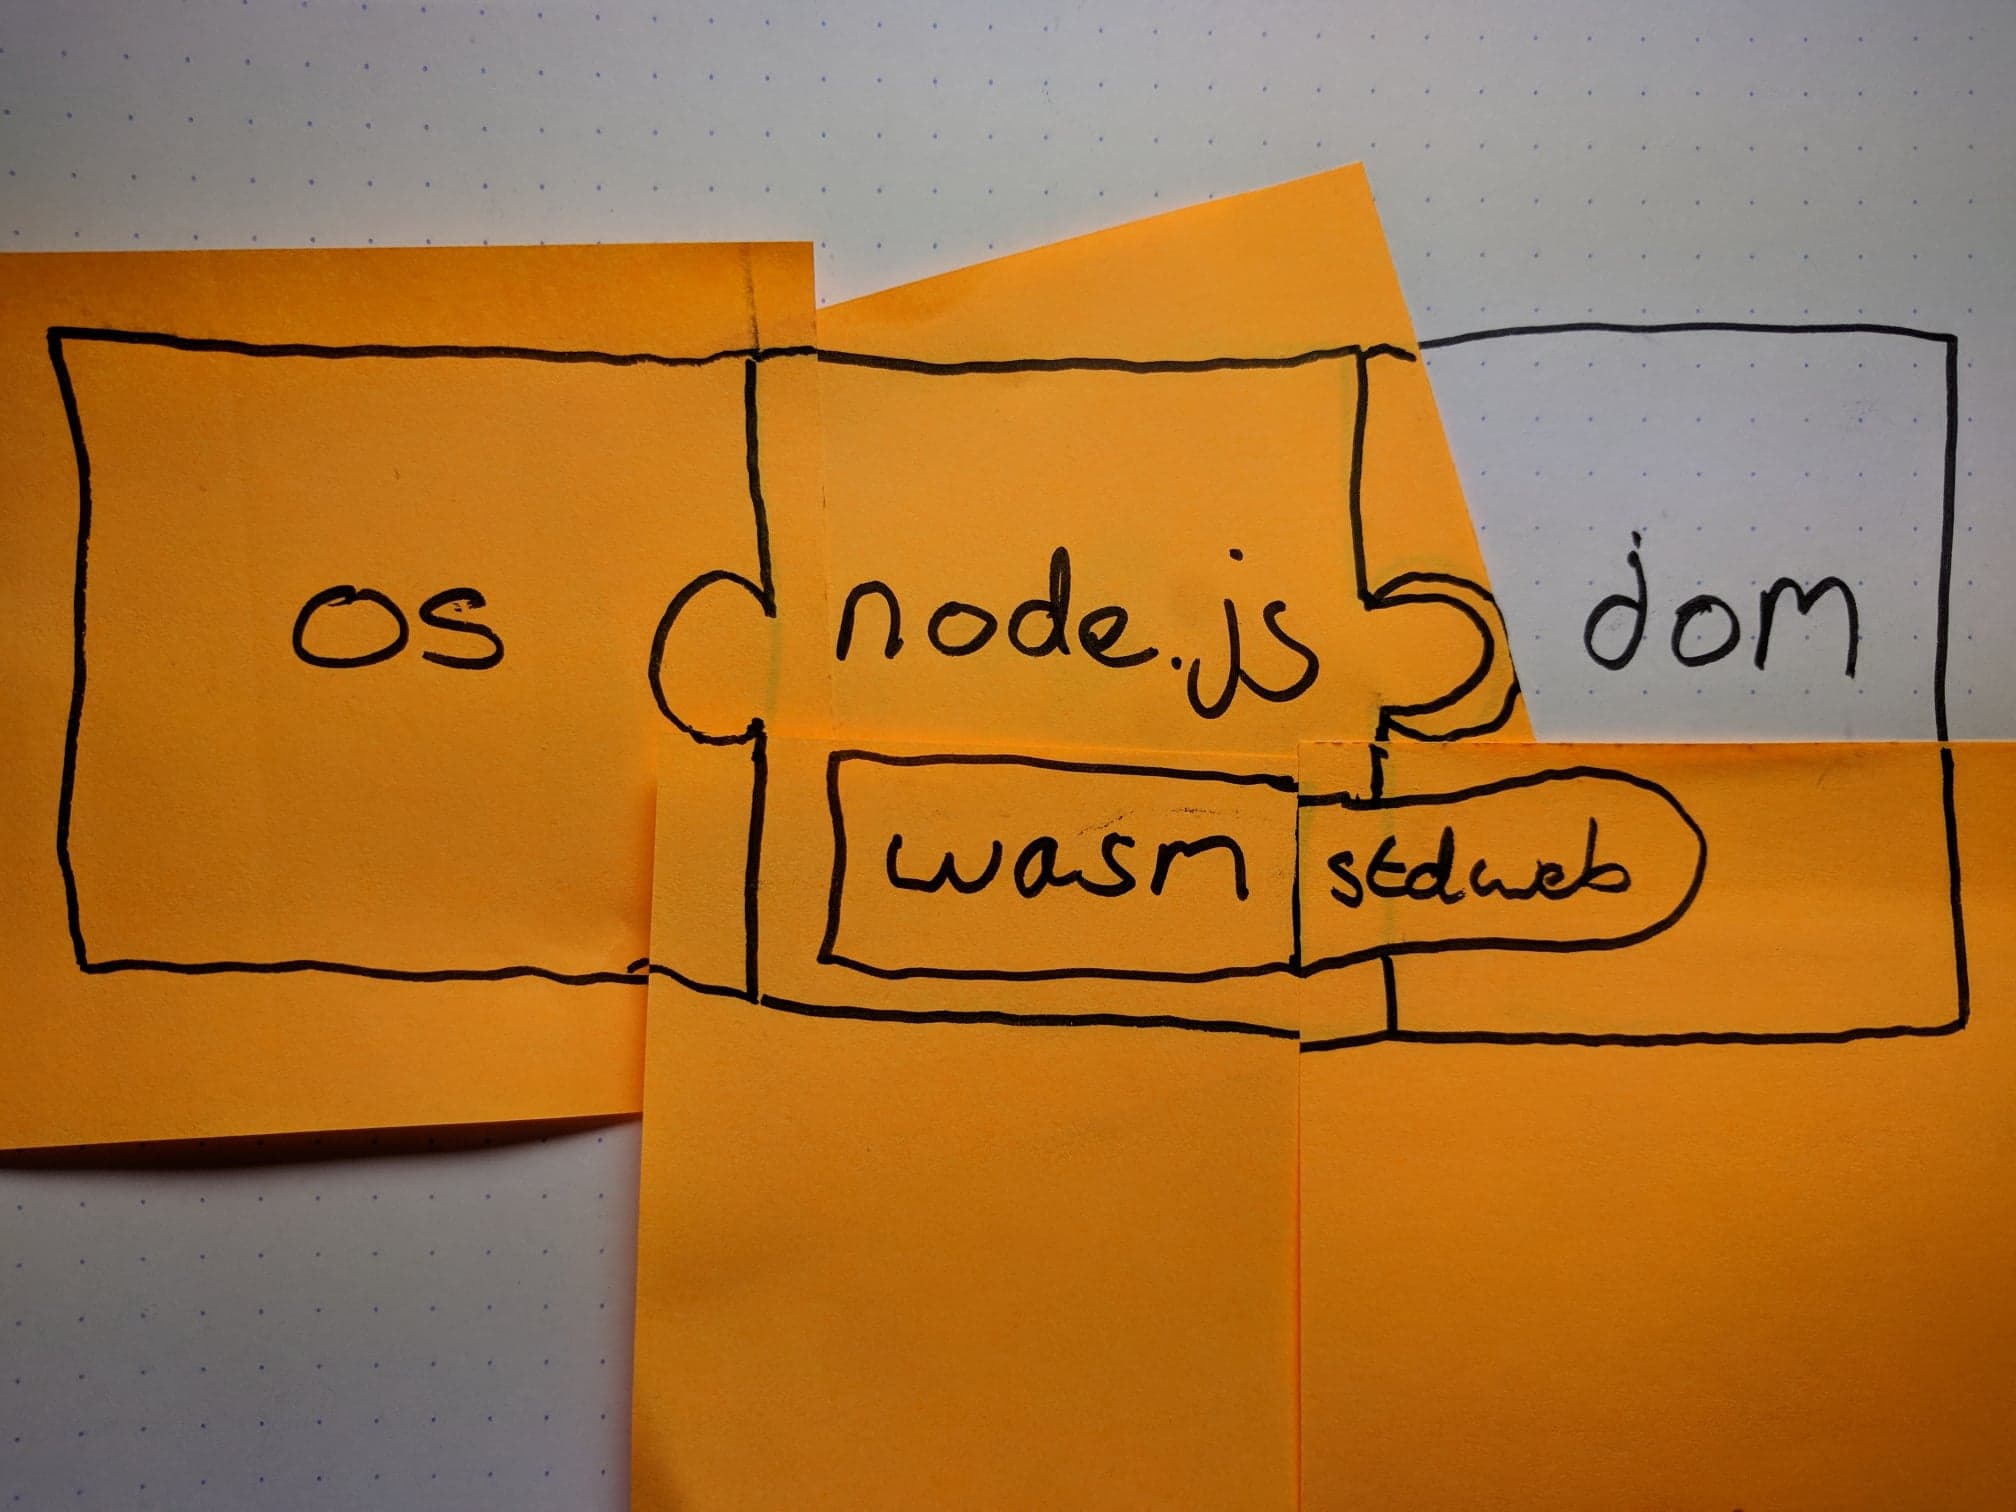 os
node.js
dom
wasm
stdweb